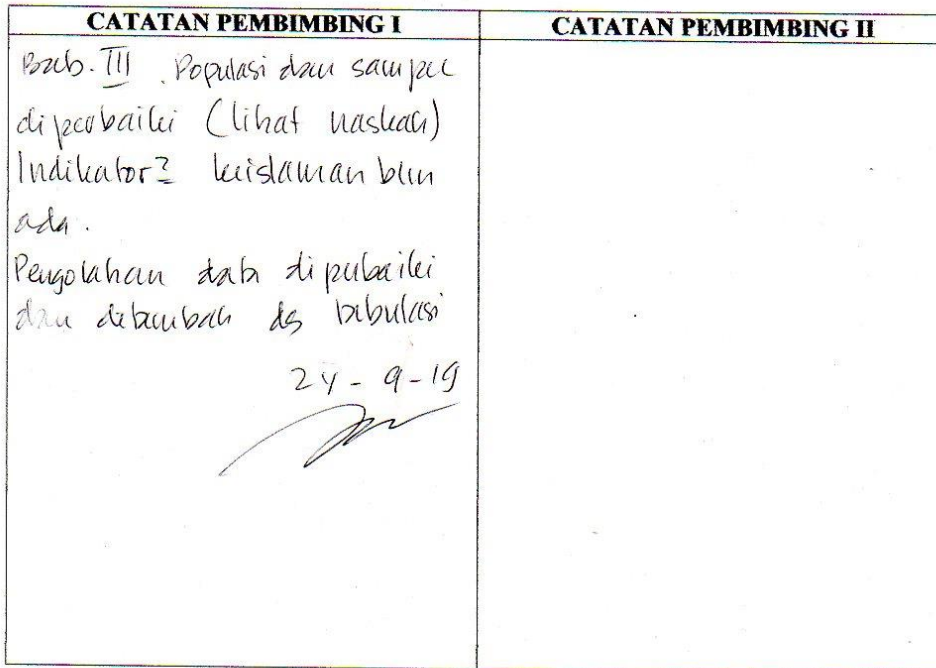 CATATAN PEMBIMBING I
CATATAN PEMBIMBING II
Bab. III. Populasi dan sampel
diperbaiki (lihat naskah)
Indikator? keislaman blm
ada.
Pengolahan data diperbaiki
dan ditambah dg tabulasi
24-9-19